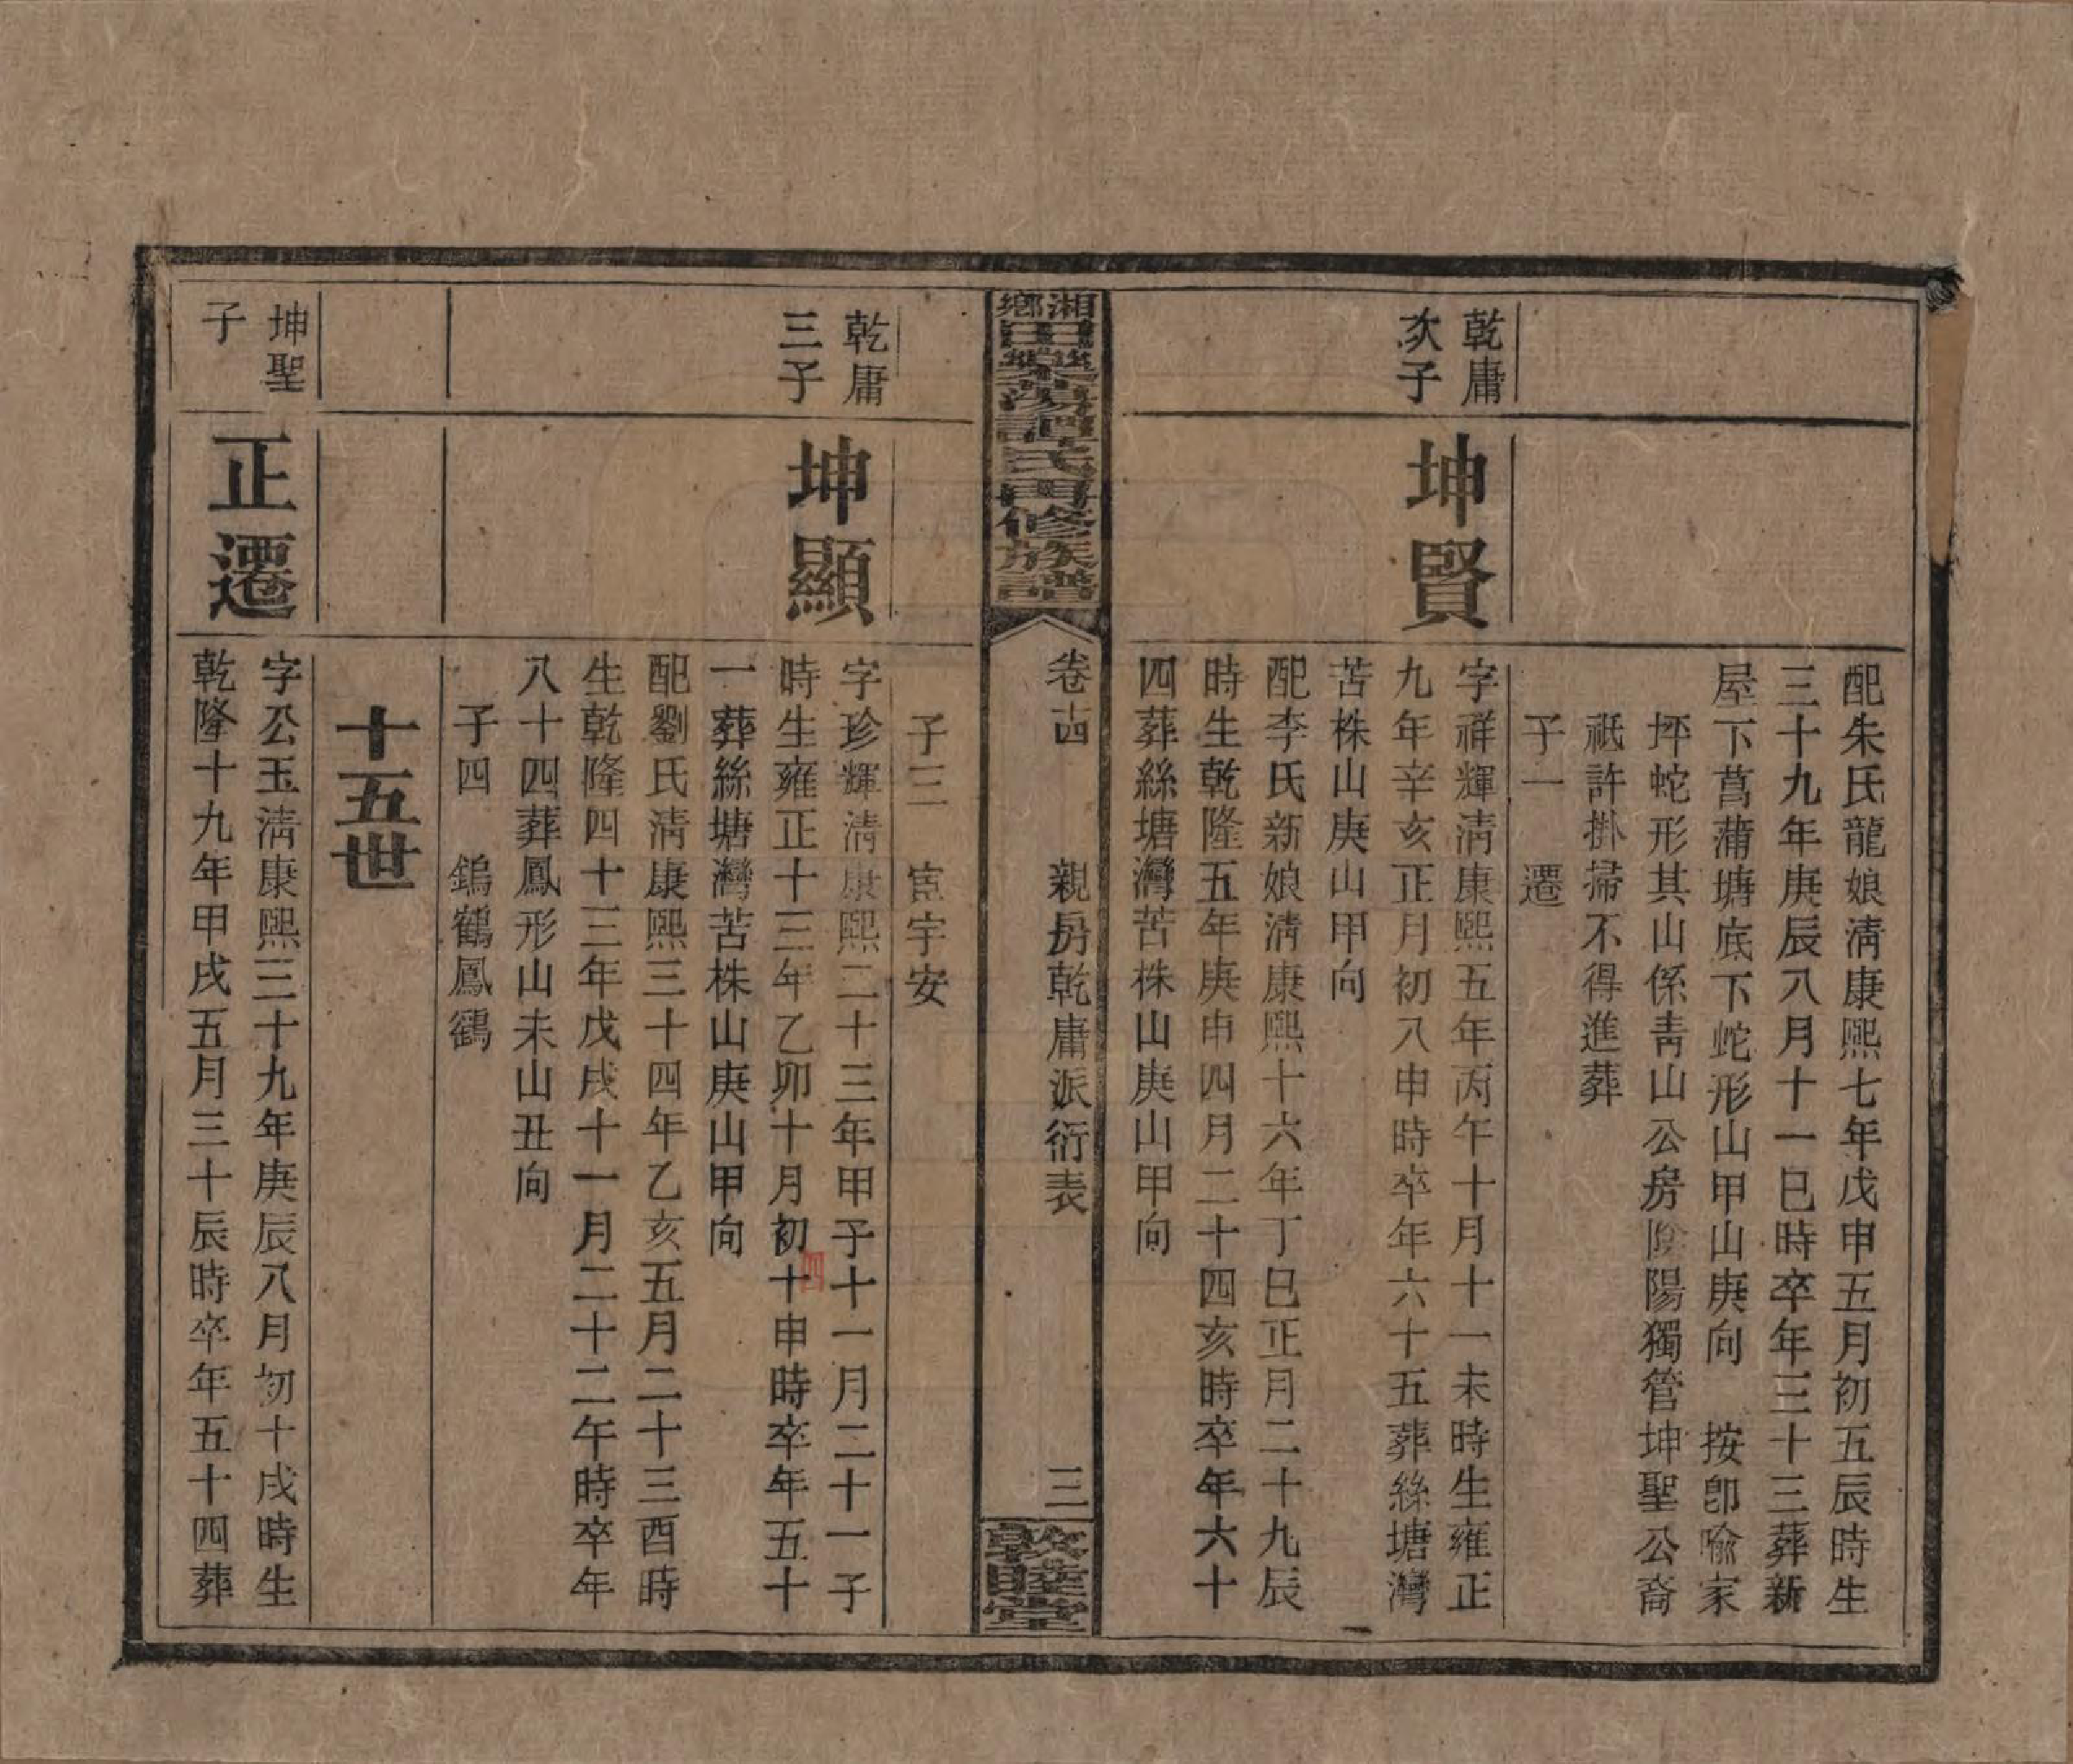 配朱氏龍娘淸康熙七年戊申五月初五辰時生
三十九年庚辰八月十一巳時卒年三十三葬新
屋下菖蒲塘底下蛇形山甲山庚向　按卽喻家
坪蛇形其山係靑山公房陰陽獨管坤聖公裔
祗許掛掃不得進葬
子一　遷
乾庸
次子
坤賢
字祥輝淸康熙五年丙午十月十一未時生雍正
九年辛亥正月初八申時卒年六十五葬絲塘灣
苦株山庚山甲向
配李氏新娘淸康熙十六年丁巳正月二十九辰
時生乾隆五年庚申四月二十四亥時卒年六十
四葬絲塘灣苦株山庚山甲向
湘鄉田心滎陽譚氏四修族譜
卷十四　親房乾庸派衍表　三
敦睦堂
子三　宧宇安
乾庸
三子
坤顯
字珍輝淸康熙二十三年甲子十一月二十一子
時生雍正十三年乙卯十月初十申時卒年五十
一葬絲塘灣苦株山庚山甲向
配劉氏淸康熙三十四年乙亥五月二十三酉時
生乾隆四十三年戊戌十一月二十二午時卒年
八十四葬鳳形山未山丑向
子四　鎢鶴鳳鶴
十五世
坤聖
子
正遷
字公玉淸康熙三十九年庚辰八月初十戌時生
乾隆十九年甲戌五月三十辰時卒年五十四葬